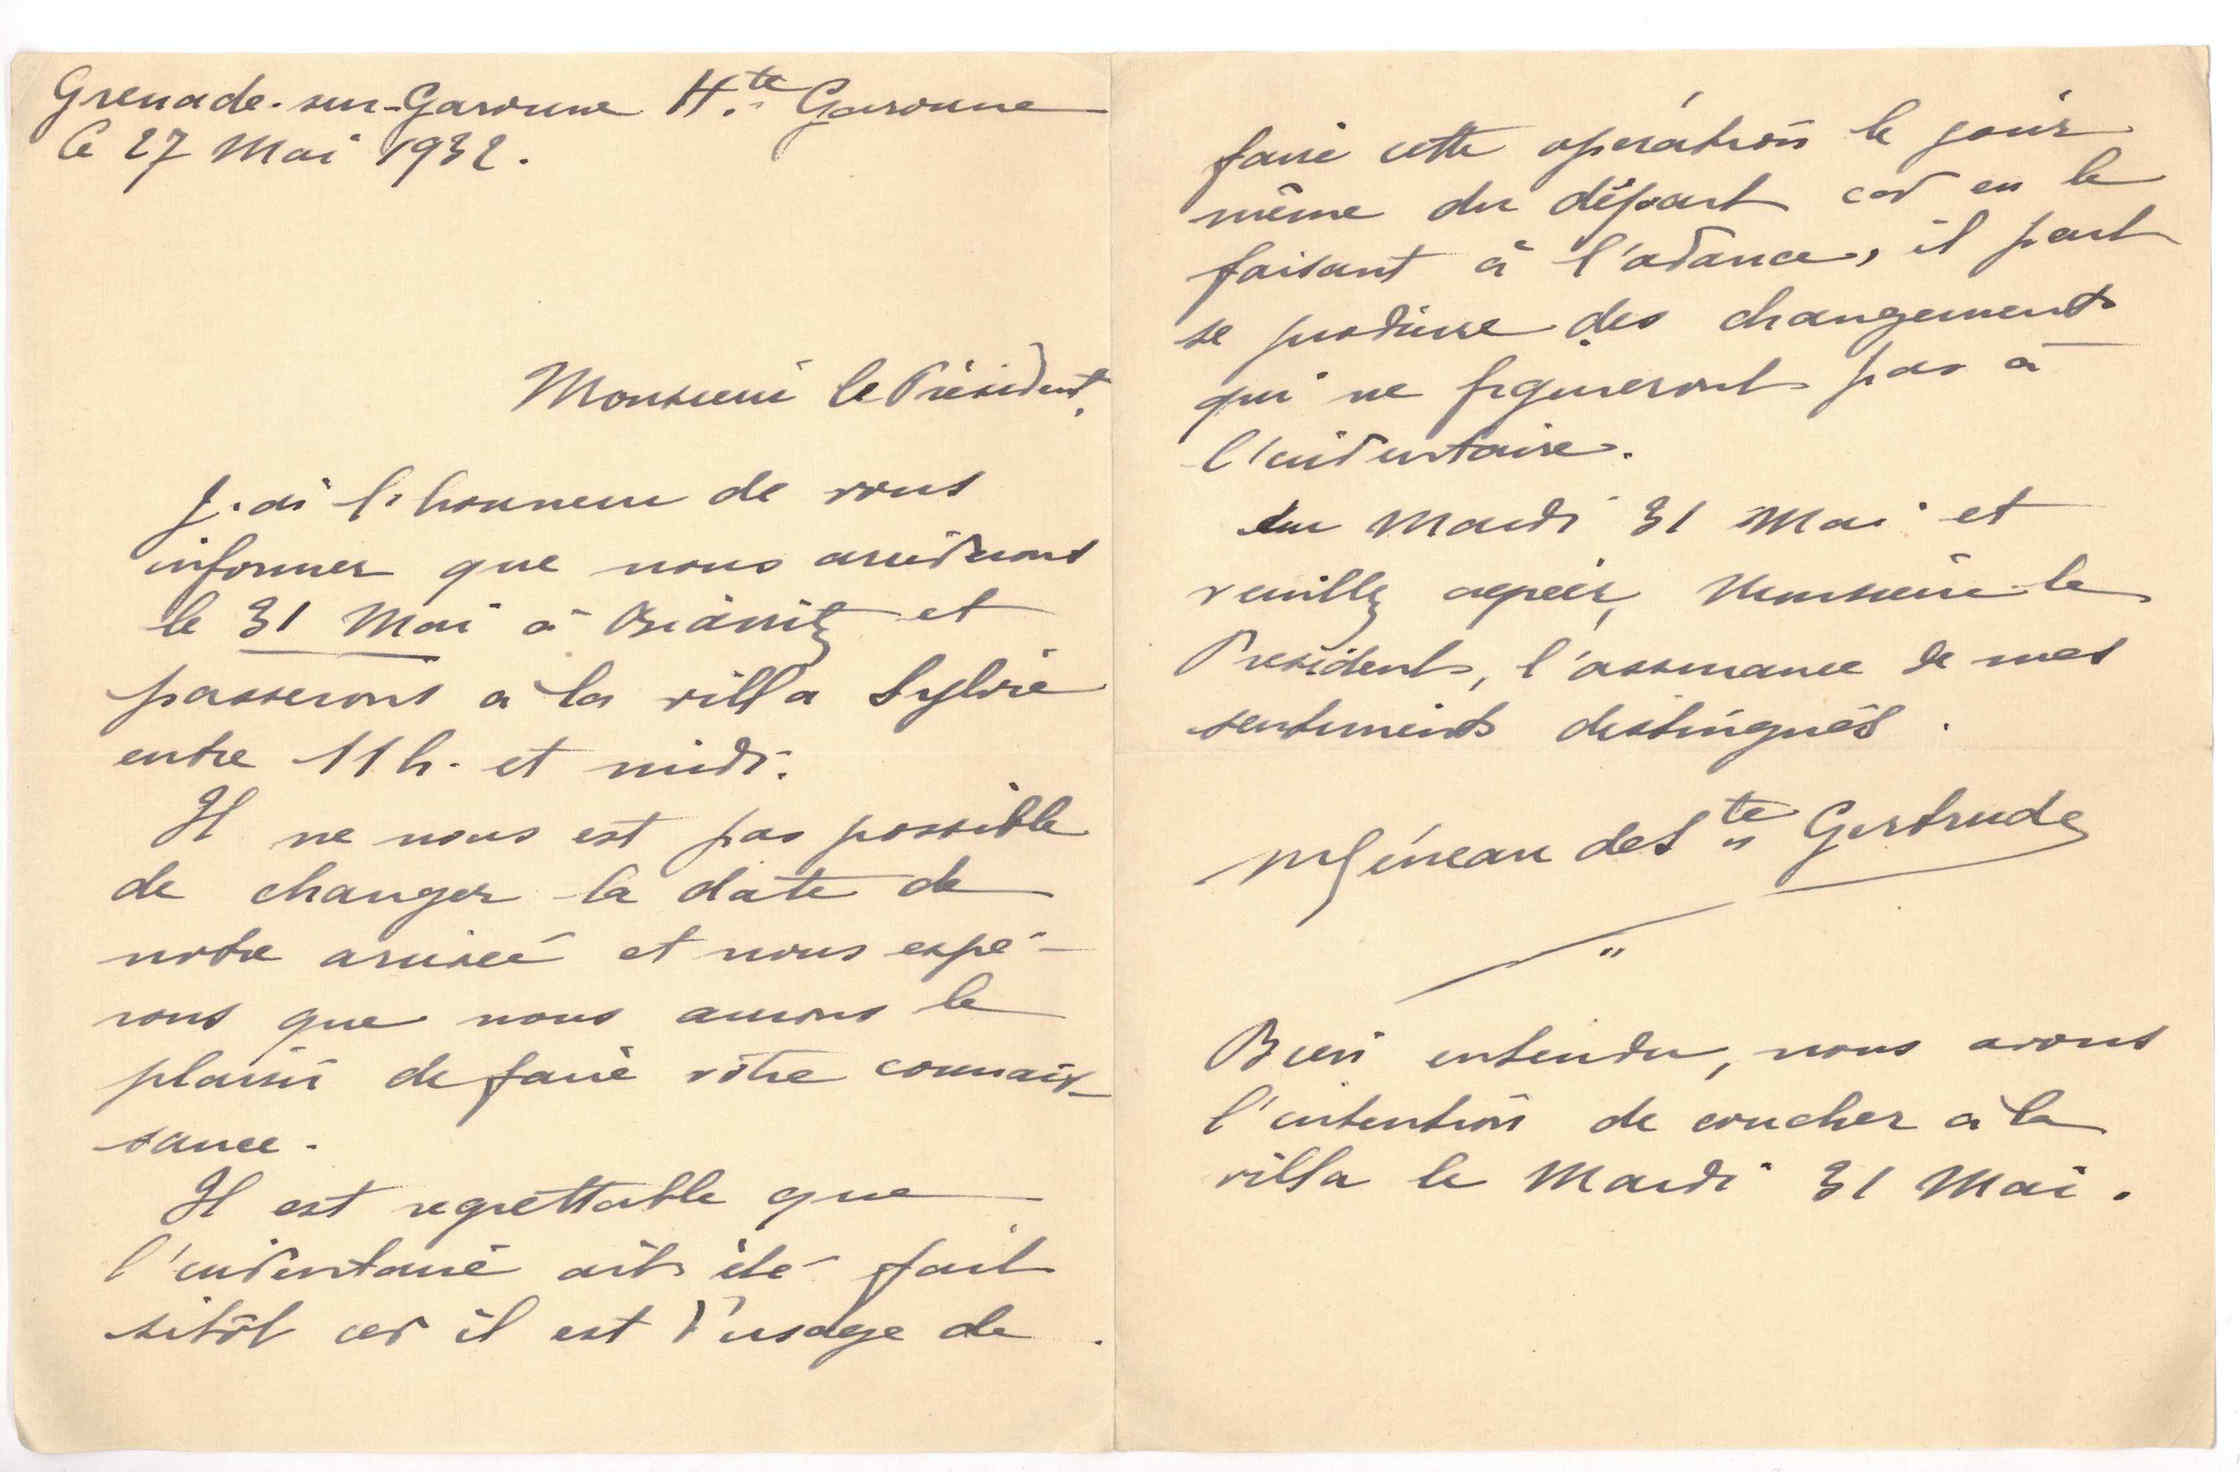 Grenade-sur-Garonne Hte Garonne
le 27 Mai 1932.
Monsieur le Président,
J'ai l'honneur de vous
informer que nous arriverons
le 31 Mai à Biarritz et
passerons a la villa Sylvie
entre 11 h. et midi.
Il ne nous est pas possible
de changer la date de
notre arrivée et nous espé-
rons que nous aurons le
plaisir de faire vôtre connais-
sance.
Il est regrettable que
l'inventaire ait été fait
sitôt car il est d'usage de
faire cette opération le jour
même du départ car en le
faisant à l'avance, il peut
se produire des changements
qui ne figureront pas à
l'inventaire.
Au Mardi 31 Mai et
veuillez agréer, Monsieur le
Président, l'assurance de mes
sentiments distingués.
Géneau de Ste Gertrude
"
Bien entendu, nous avons
l'intention de coucher à la
villa le Mardi 31 Mai.